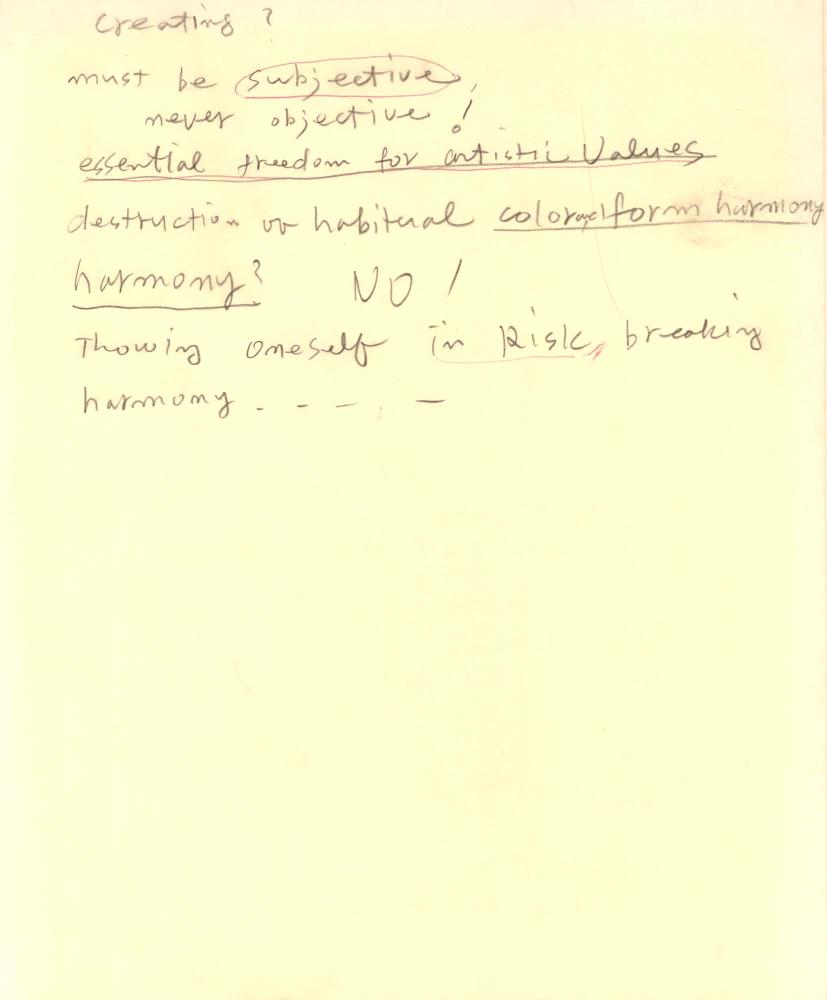 Creating ?
must be subjective,
never objective !
essential freedom for artistic Values
destruction habitual color and form harmony
harmony? NO !
Thowing oneself in Risk, breaking
harmony . - - . -